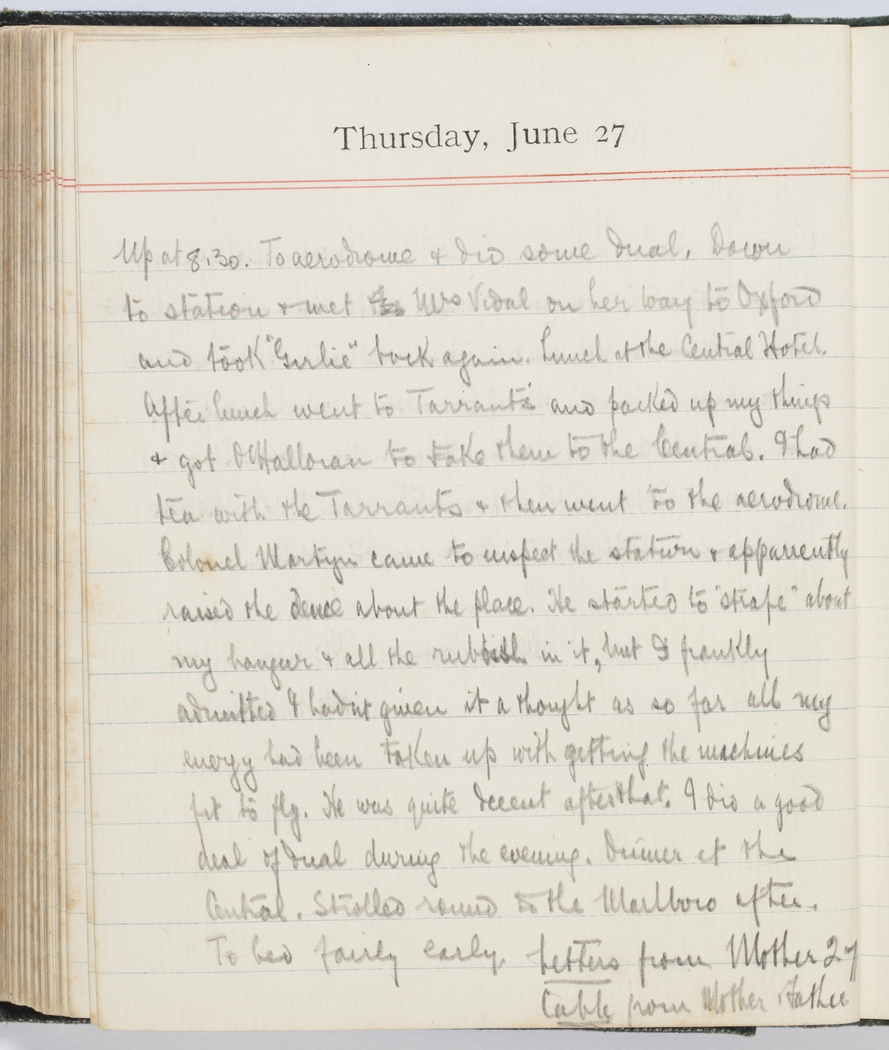 Thursday, June 27
Up at 8.30. To aerodrome & did some dual. Down
to station & met Mrs Vidal on her way to Oxford
and took "Girlie" back again. Lunch at the Central Hotel.
After lunch went to Tarrants' and packed up my things
& got O'Halloran to take them to the Central. I had
tea with the Tarrants & then went to the aerodrome.
Colonel Martyn came to inspect the station & apparently
raised the deuce about the place. He started to "strafe" about
my hangar & all the rubbish in it, but I frankly
admitted I hadn't given it a thought as so far all my
energy had been taken up with getting the machines
fit to fly. He was quite decent after that. I did a good
deal of dual during the evening. Dinner at the
Central. Strolled round to the Marlboro after.
To bed fairly early. Letters from Mother 27
Cable from Mother & Father